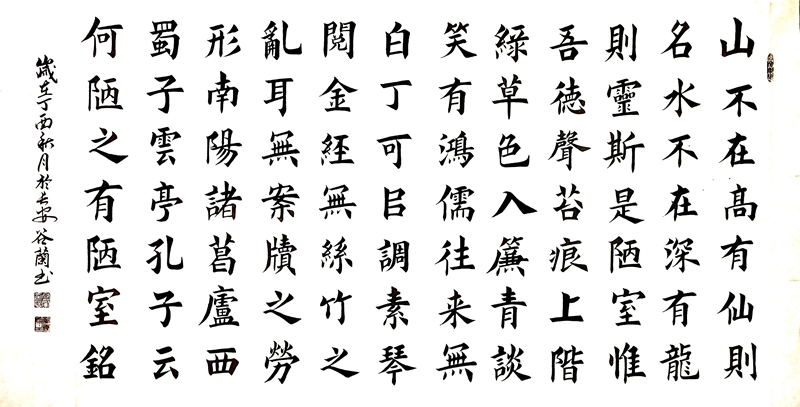 山不在髙有仙則
名水不在深有龍
則靈斯是陋室惟
吾徳聲苔痕上階
綠草色入簾青談
笑有鴻儒往来無
白丁可㠯調素琴
閱金經無絲竹之
亂耳無案牘之勞
形南陽諸葛廬西
蜀子雲亭孔子云
何陋之有陋室銘
歲在丁酉秋月於长安谷蘭书